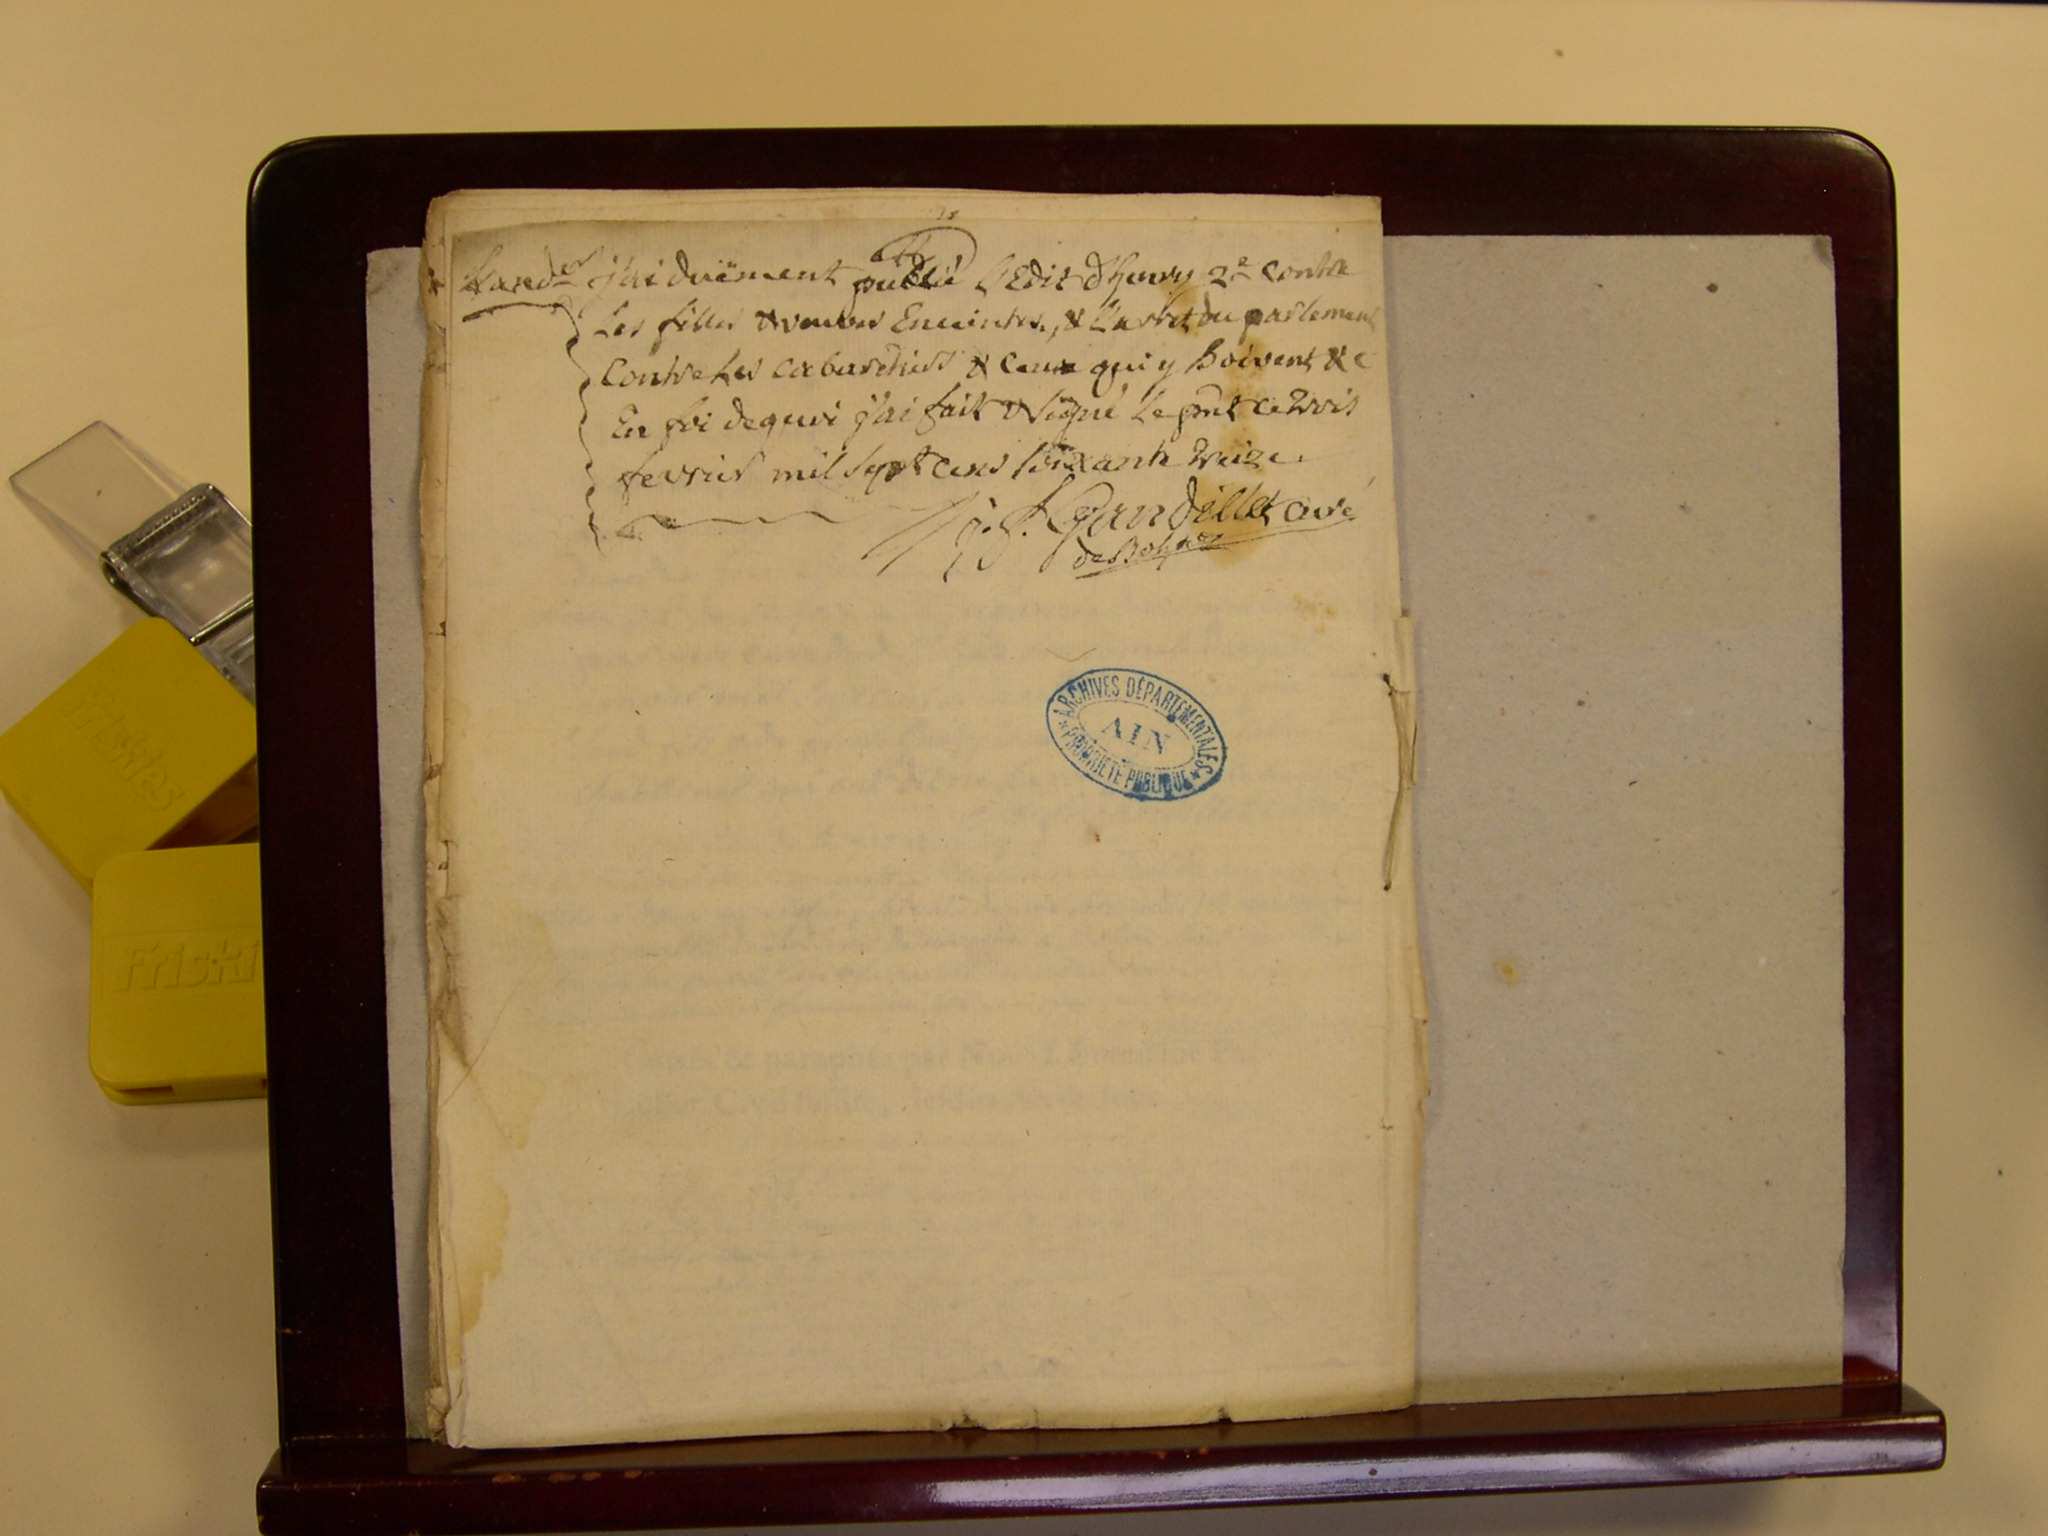 j'ai duëment publié l'Edit d'henry 2e contre
Les filles & veuves Enceintes, & L'arret du parlement
contre Les cabaretiers & ceux qui y Boivent &c
En foi de quoi j'ai fait & signé Le pnt ce trois
fevrier mil sept cens soixante treize
Gandillet curé
de Bohas
ARCHIVES DÉPARTEMENTALES
AIN
PROPRIÉTÉ PUBLIQUE
Friskies
Friski